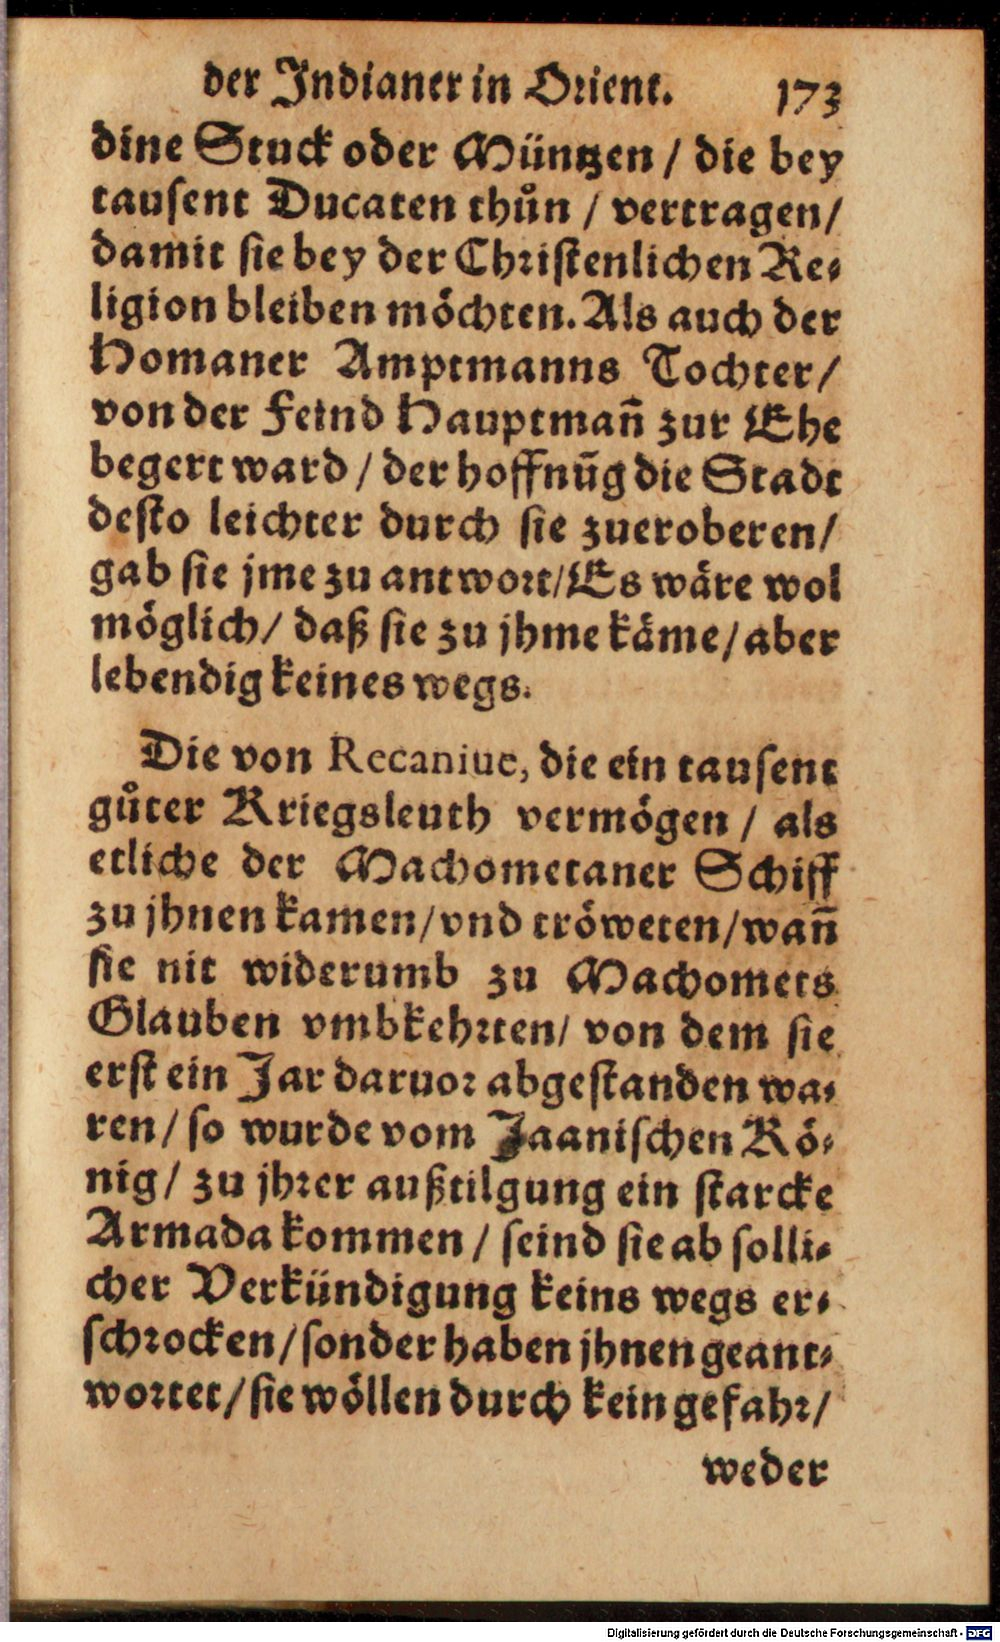 der Indianer in Orient. 173
dine Stuck oder Müntzen / die bey
tausent Ducaten thůn / vertragen/
damit sie bey der Christenlichen Re-
ligion bleiben möchten. Als auch der
Homaner Amptmanns Tochter/
von der Feind Hauptmañ zur Ehe
begert ward / der hoffnũg die Stadt
desto leichter durch sie zueroberen/
gab sie jme zu antwort/ Es wäre wol
möglich/ daß sie zu jhme käme/ aber
lebendig keines wegs.
Die von Recaniue, die ein tausent
gůter Kriegsleuth vermögen / als
etliche der Machometaner Schiff
zu jhnen kamen/ vnd tröweten/ wañ
sie nit widerumb zu Machomets
Glauben vmbkehrten/ von dem sie
erst ein Jar daruor abgestanden wa-
ren/ so wurde vom Jaanischen Kö-
nig/ zu jhrer außtilgung ein starcke
Armada kommen / seind sie ab solli-
cher Verkündigung keins wegs er-
schrocken/ sonder haben jhnen geant-
wortet/ sie wöllen durch kein gefahr/
weder
Digitalisierung gefördert durch die Deutsche Forschungsgemeinschaft - DFG